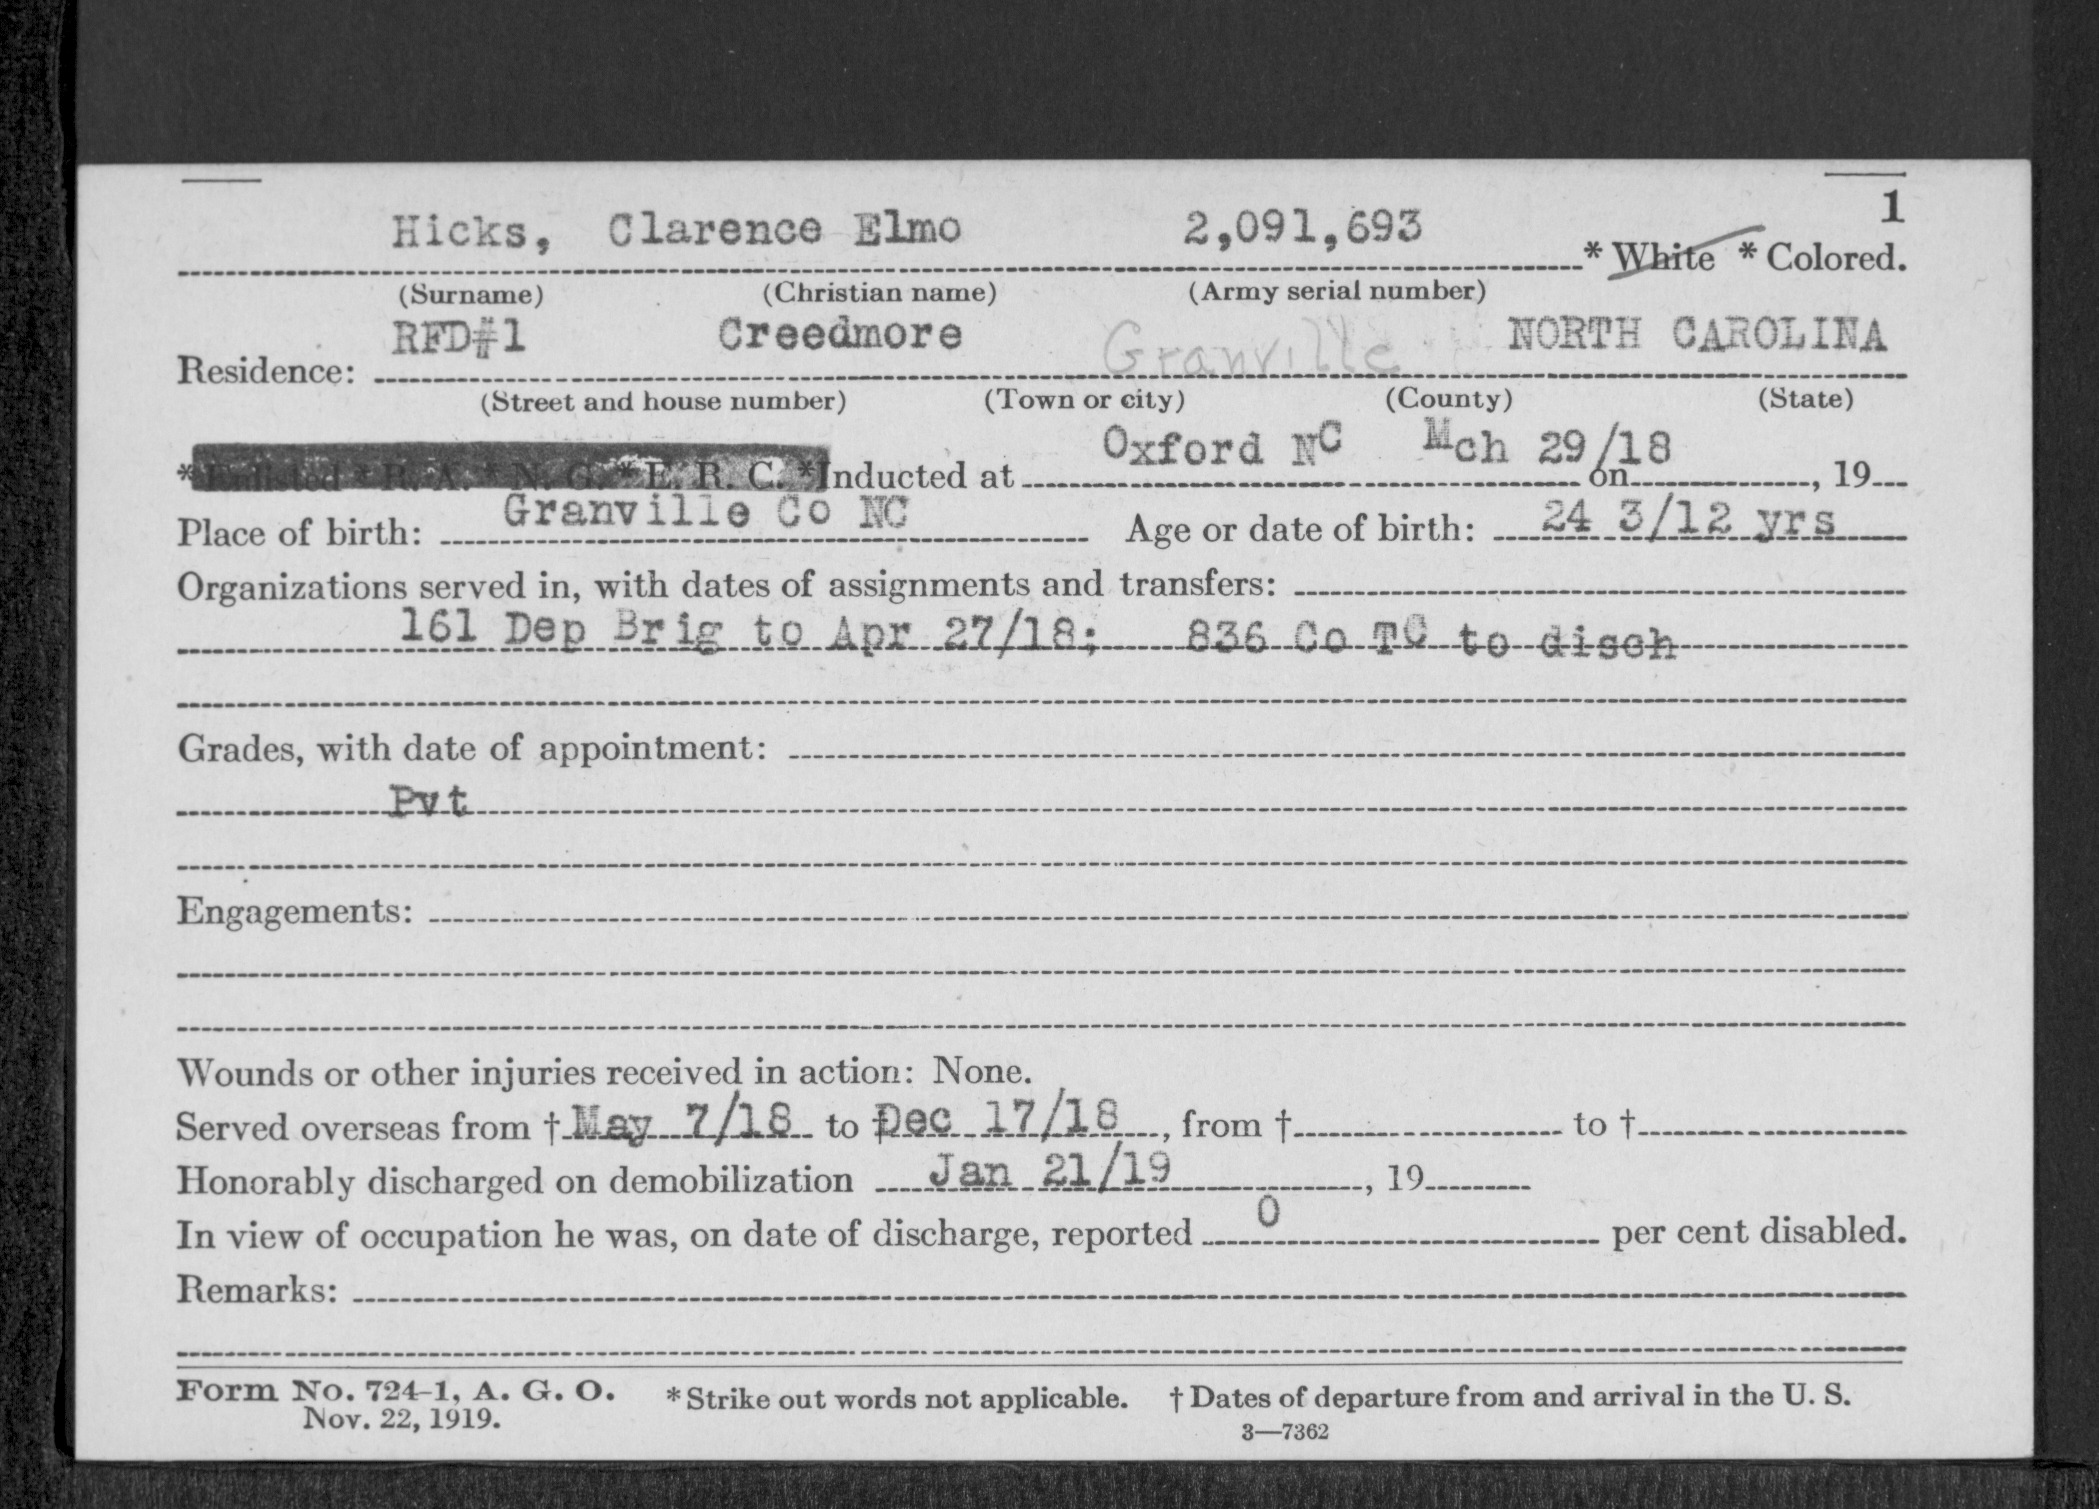 1
Hicks, Clarence Elmo 2,091,693 * White * Colored.
(Surname) (Christian name) (Army serial number)
RFD#1 Creedmore Granville NORTH CAROLINA
Residence:
(Street and house number) (Town or city) (County) (State)
Oxford NC Mch 29/18
* Enlisted * R. A. * N. G. * E. R. C. *Inducted at on , 19
Place of birth: Granville Co NC Age or date of birth: 24 3/12 yrs
Organizations served in, with dates of assignments and transfers:
161 Dep Brig to Apr 27/18; 836 Co TC to disch
Grades, with date of appointment:
Pvt
Engagements:
Wounds or other injuries received in action: None.
Served overseas from † May 7/18 to † Dec 17/18, from † to †
Honorably discharged on demobilization Jan 21/19, 19
In view of occupation he was, on date of discharge, reported 0 per cent disabled.
Remarks:
Form No. 724-1, A. G. O. * Strike out words not applicable. † Dates of departure from and arrival in the U. S.
Nov. 22, 1919. 3—7362